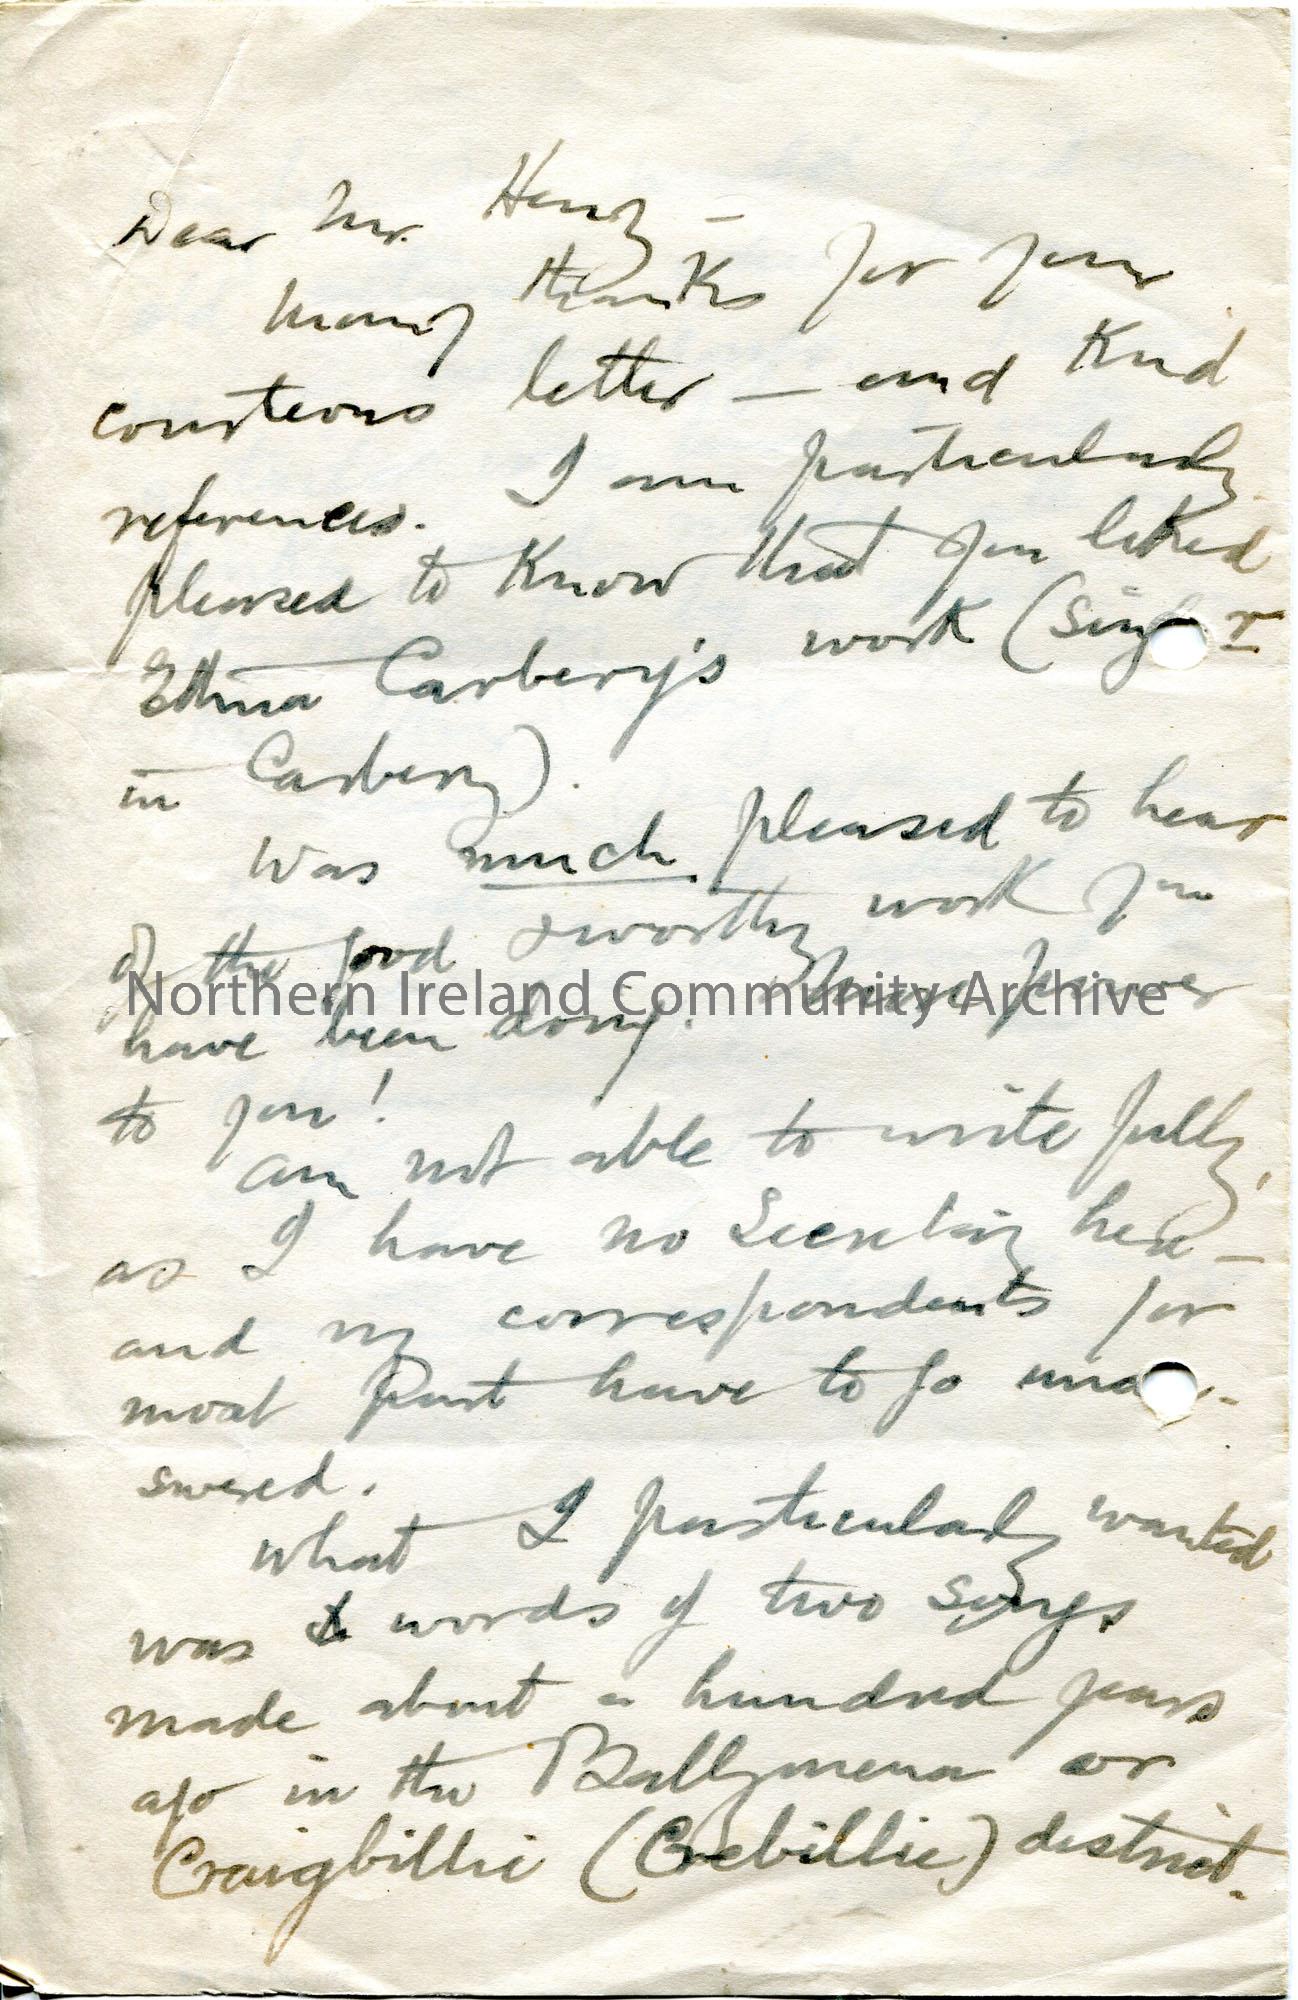 Dear Mr. Henry –
Many thanks for your
courteous letter – and kind
references. I am particularly
pleased to know that you liked
Ethna Carbery's work (Sing
in Carbery).
Was much pleased to hear
of the good & worthy work you
have been doing. More power
to you!
Am not able to write fully,
as I have no Secretary here –
and my correspondents for
most part have to go unan-
swered.
What I particularly wanted
was words of two songs
made about a hundred years
ago in the Ballymena or
Craigbillie (Crebillie) district.
Northern Ireland Community Archive